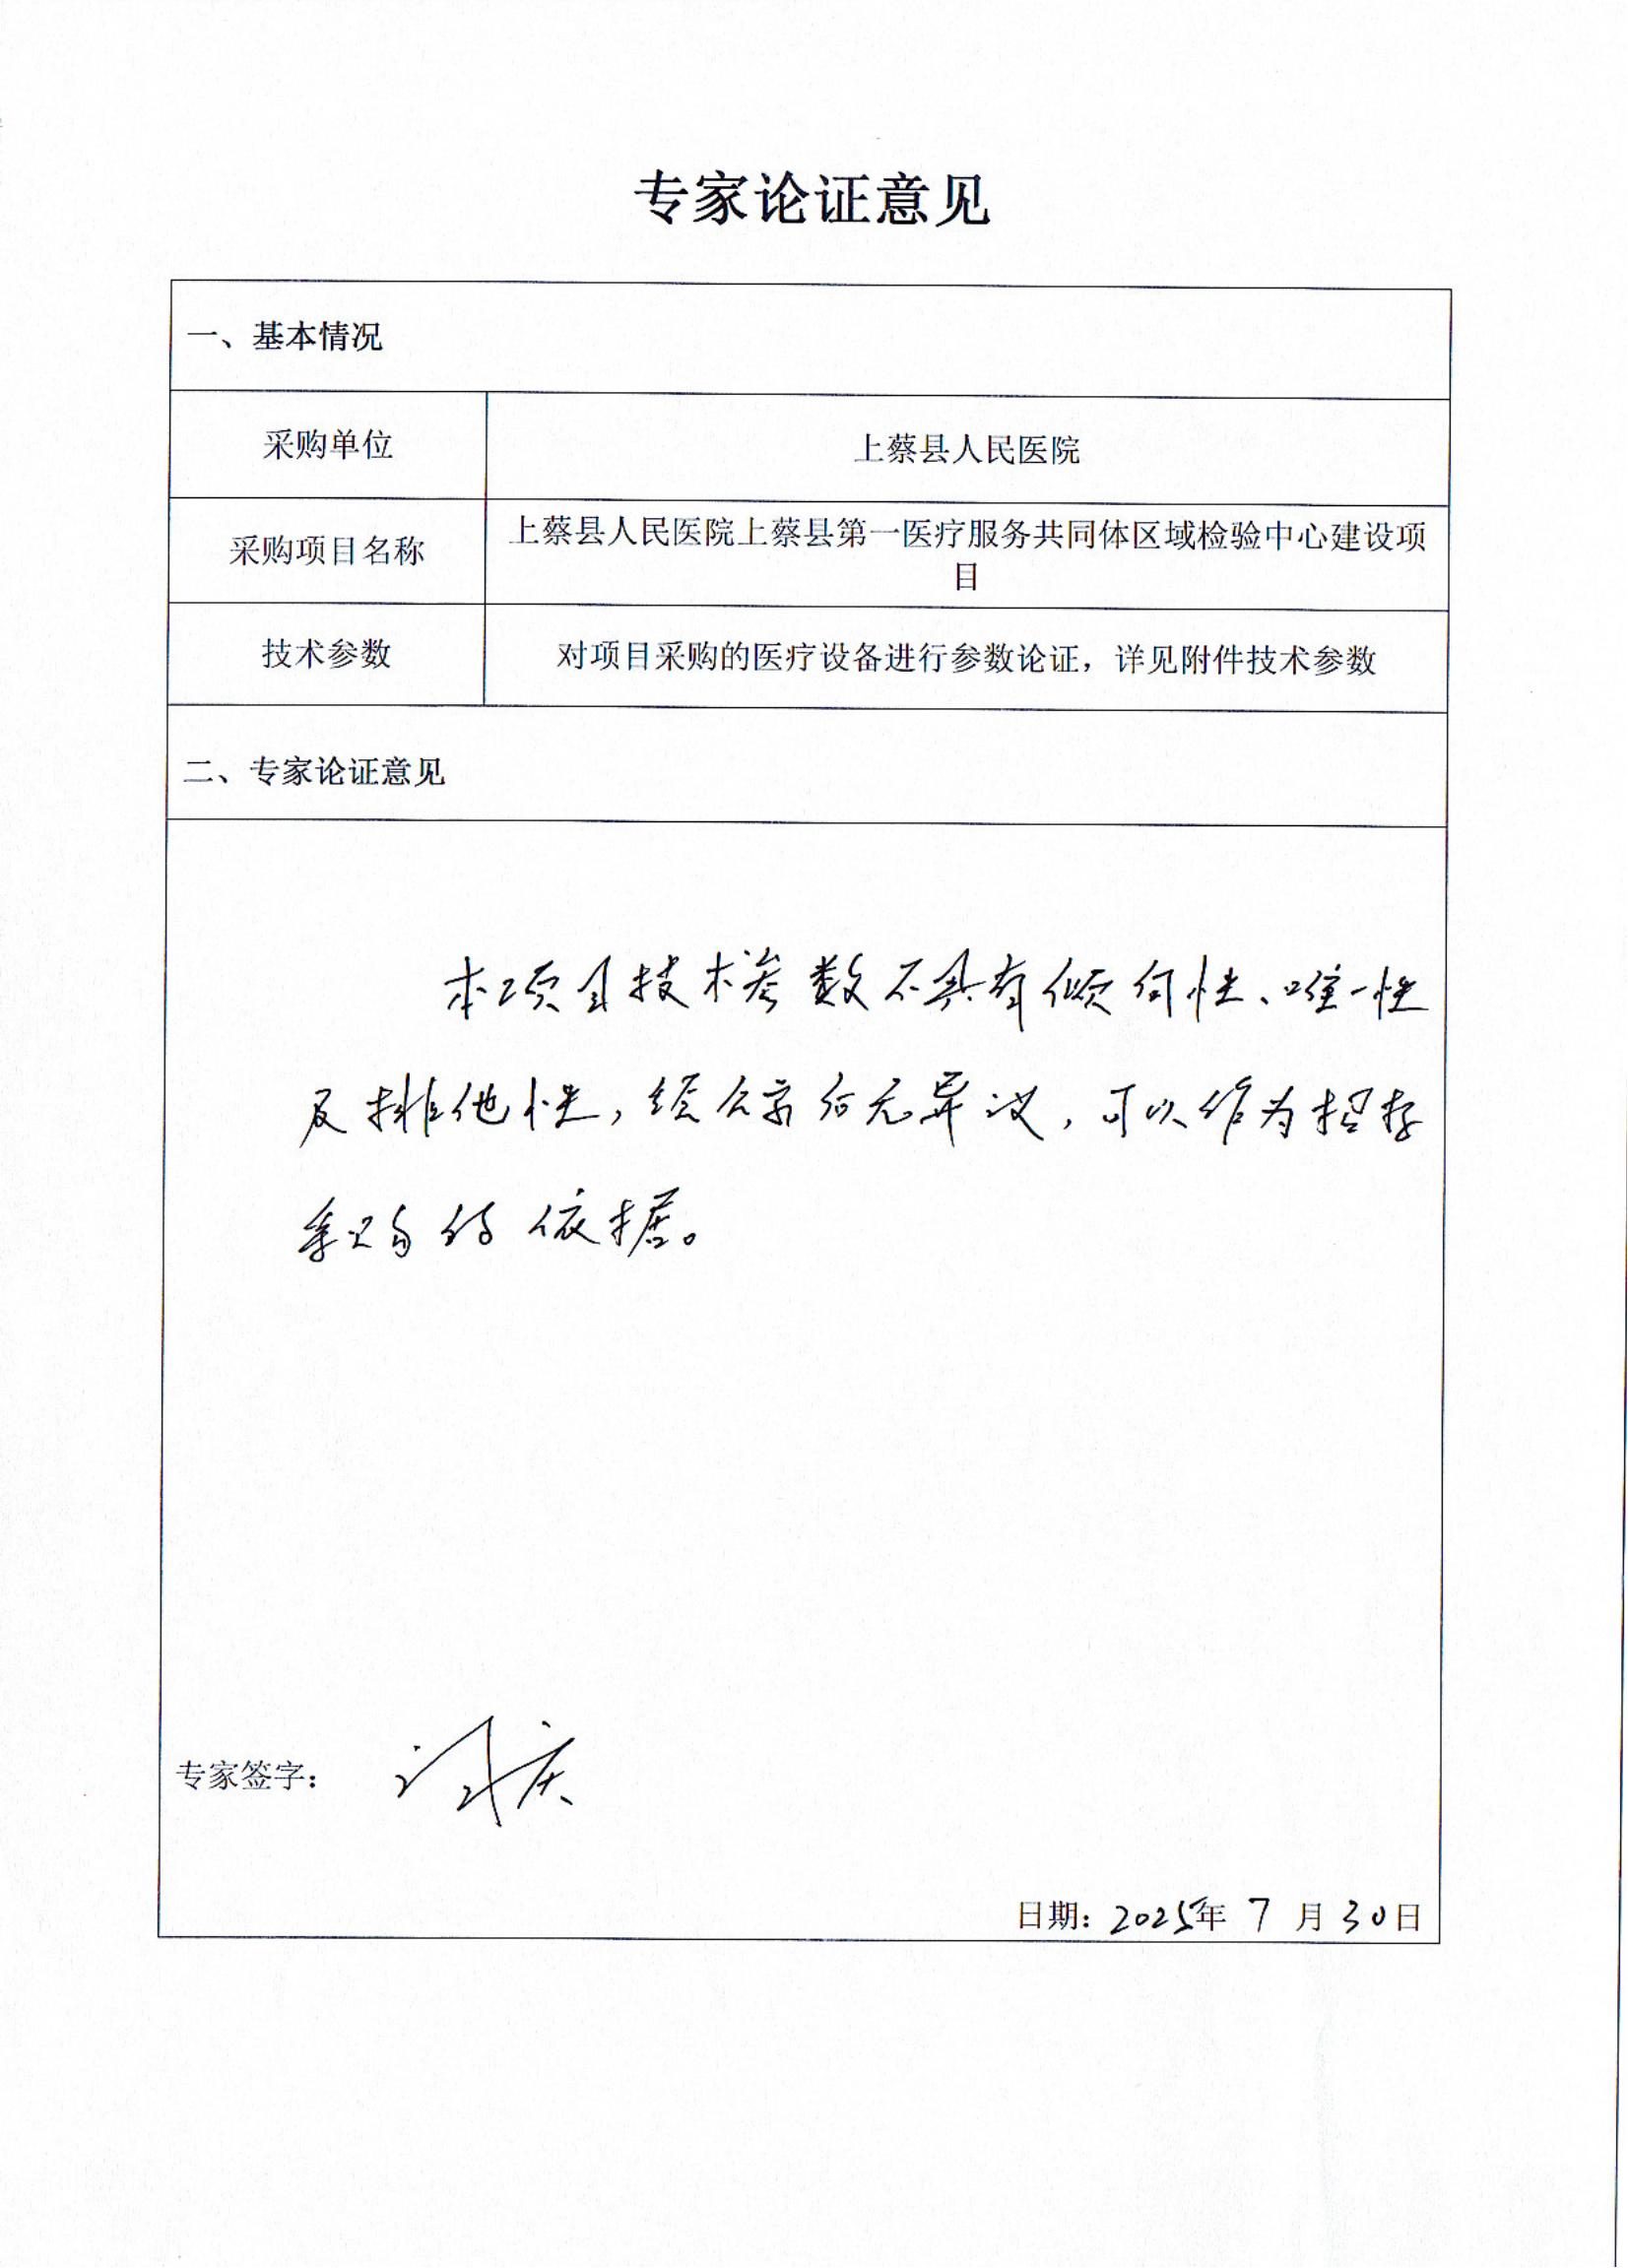 专家论证意见
一、基本情况
采购单位
上蔡县人民医院
采购项目名称
上蔡县人民医院上蔡县第一医疗服务共同体区域检验中心建设项
目
技术参数
对项目采购的医疗设备进行参数论证，详见附件技术参数
二、专家论证意见
本项目技术参数不具有倾向性、唯一性
及排他性，经公示后无异议，可以作为招标
采购的依据。
专家签字：
日期：2025年 7 月 30日